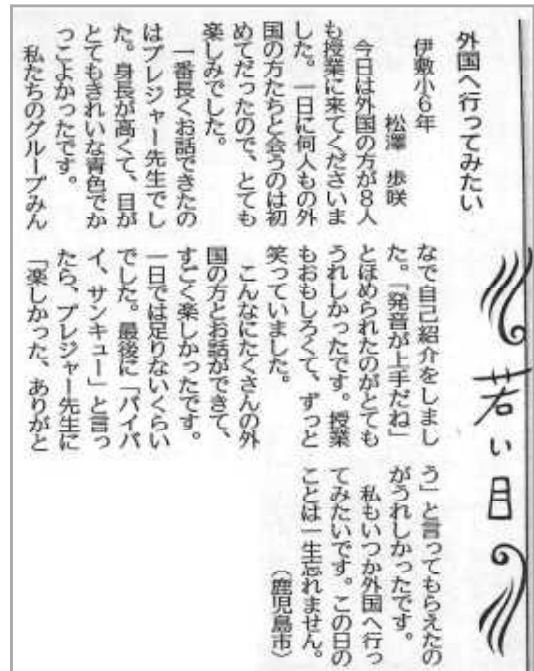 若い目
外国へ行ってみたい
伊敷小6年
松澤 歩咲
今日は外国の方が8人
も授業に来てくださいま
した。一日に何人もの外
国の方たちと会うのは初
めてだったので、とても
楽しみでした。
一番長くお話できたの
はプレジャー先生でし
た。身長が高くて、目が
とてもきれいな青色でか
っこよかったです。
私たちのグループみん
なで自己紹介をしまし
た。「発音が上手だね」
とほめられたのがとても
うれしかったです。授業
もおもしろくて、ずっと
笑っていました。
こんなにたくさんの外
国の方とお話ができて、
すごく楽しかったです。
一日では足りないくらい
でした。最後に「バイバ
イ、サンキュー」と言っ
たら、プレジャー先生に
「楽しかった、ありがと
う」と言ってもらえたの
がうれしかったです。
私もいつか外国へ行っ
てみたいです。この日の
ことは一生忘れません。
(鹿児島市)